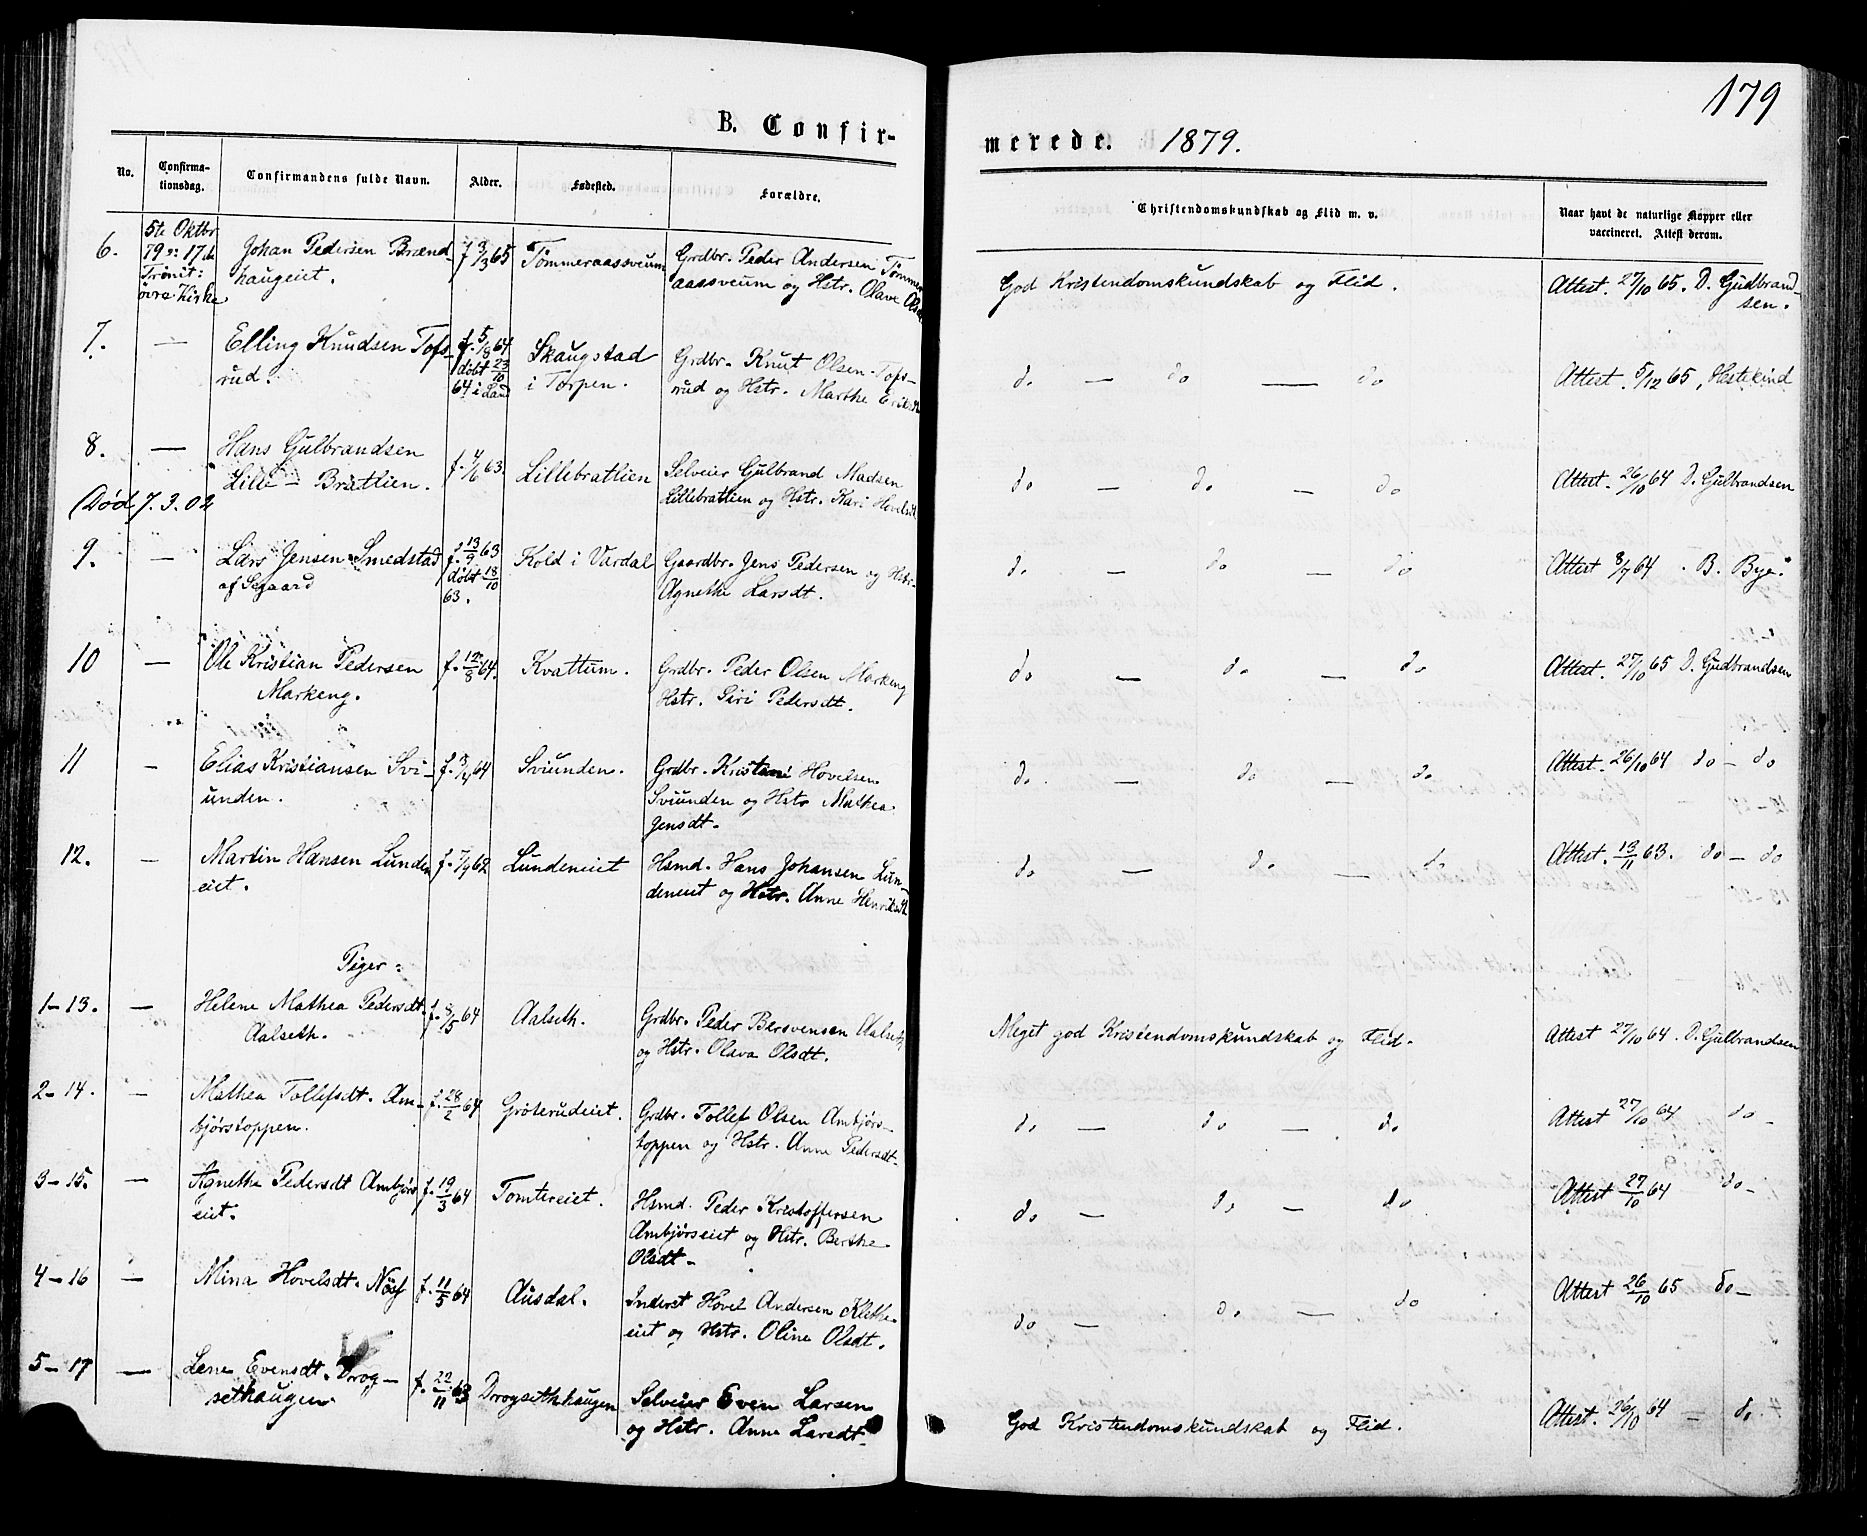 179
B. Confir-
merede. 1879.
No.
Confirma-
tionsdag.
Confirmandens fulde Navn.
Alder.
Fødested.
Forældre.
Christendomskundskab og Flid m. v.
Naar havt de naturlige Kopper eller
vaccineret. Attest derom.
6.
5te Oktbr
79 s: 17 d
Trinit:
øvre Kirke
Johan Pedersen Brænd
haugeiet.
f 3/3 65
Tømmeraassveum
Grdbr. Peder Andersen Tømmer
aassveum og Hstr. Olave Ols
God Kristendomskundskab og Flid.
Attest. 27/10 65. D. Gudbrand
sen.
7.
—
Elling Knudsen Tofs-
rud.
f. 5/8 64
døbt 23/10
64 i Land
Skaugstad
i Torpen.
Grdbr. Knut Olsen Tofs-
rud og Hstr. Marthe Eriksdt
do — do — do
Attest. 5/12 65, Hestekind
8.
—
Hans Gulbrandsen
Lille-Brattlien.
f. 4/6 63
Lillebratlien
Selveier Gulbrand Madsen
Lillebratlien og Hstr. Kari Hovelsdt
do — do — do
Attest. 26/10 64 D. Gulbrandsen
Død 7.3.02
9.
—
Lars Jensen Smedstad
af Segaard
f. 13/9 63
døbt 18/10
63.
Kold i Vardal
Gaardbr. Jens Pedersen og Hstr.
Agnethe Larsdt.
do — do — do
Attest 8/7 64 . B. Bye.
10
—
Ole Kristian Pedersen
Markeng.
f. 12/8 64.
Kvattum.
Grdbr. Peder Olsen Markeng
Hstr. Siri Pedersdt.
do — do — do
Attest. 27/10 65 D. Gudbrandsen
11
—
Elias Kristiansen Svi-
unden.
f. 3/4 64
Sviunden.
Grdbr. Kristani Hovelsen
Sviunden og Hstr Mathea
Jensdt.
do — do — do
Attest. 26/10 64 do — do
12.
—
Martin Hansen Lunden
eiet.
f. 7/9 62
Lundeneiet
Hsmd. Hans Johansen Lun-
deneiet og Hstr. Anne Henriksdt
do — do — do
Attest. 13/11 63. do — do
Piger:
1-13.
—
Helene Mathea Pedersdt.
Aalseth.
f. 8/5 64
Aalseth.
Grdbr. Peder Bersvensen Aalseth
og Hstr. Olava Olsdt.
Meget god Kristendomskundskab og Flid.
Attest 27/10 64. D. Gulbrandsen
2-14.
—
Mathea Tollefsdt. Am-
bjørstoppen.
f. 28/2 64
Gröterudeiet.
Grdbr. Tollef Olsen Ambjørs-
toppen og Hstr. Anne Pedersdt.
do — do — do
Attest 27/10 64 do —
3-15.
—
Agnethe Pedersdt Ambjørs
eiet.
f. 19/3 64
Tomtereiet.
Hsmd. Peder Kristoffersen
Ambjørseiet og Hstr. Berthe
Olsdt.
do — do — do
Attest 27/10 64 do —
4-16
—
Mina Hovelsdt. Nøss
f. 11/5 64
Ausdal.
Inderst Hovel Andersen Klethe
eiet og Hstr. Oline Olsdt.
do — do — do
Attest 26/10 65 do —
5-17
—
Lene Evensdt. Drog-
sethaugen
f. 22/11 63
Drogsethhaugen
Selveier Even Larsen
og Hstr. Anne Larsdt
God Kristendomskundskab og Flid.
Attest. 26/10 64 — do